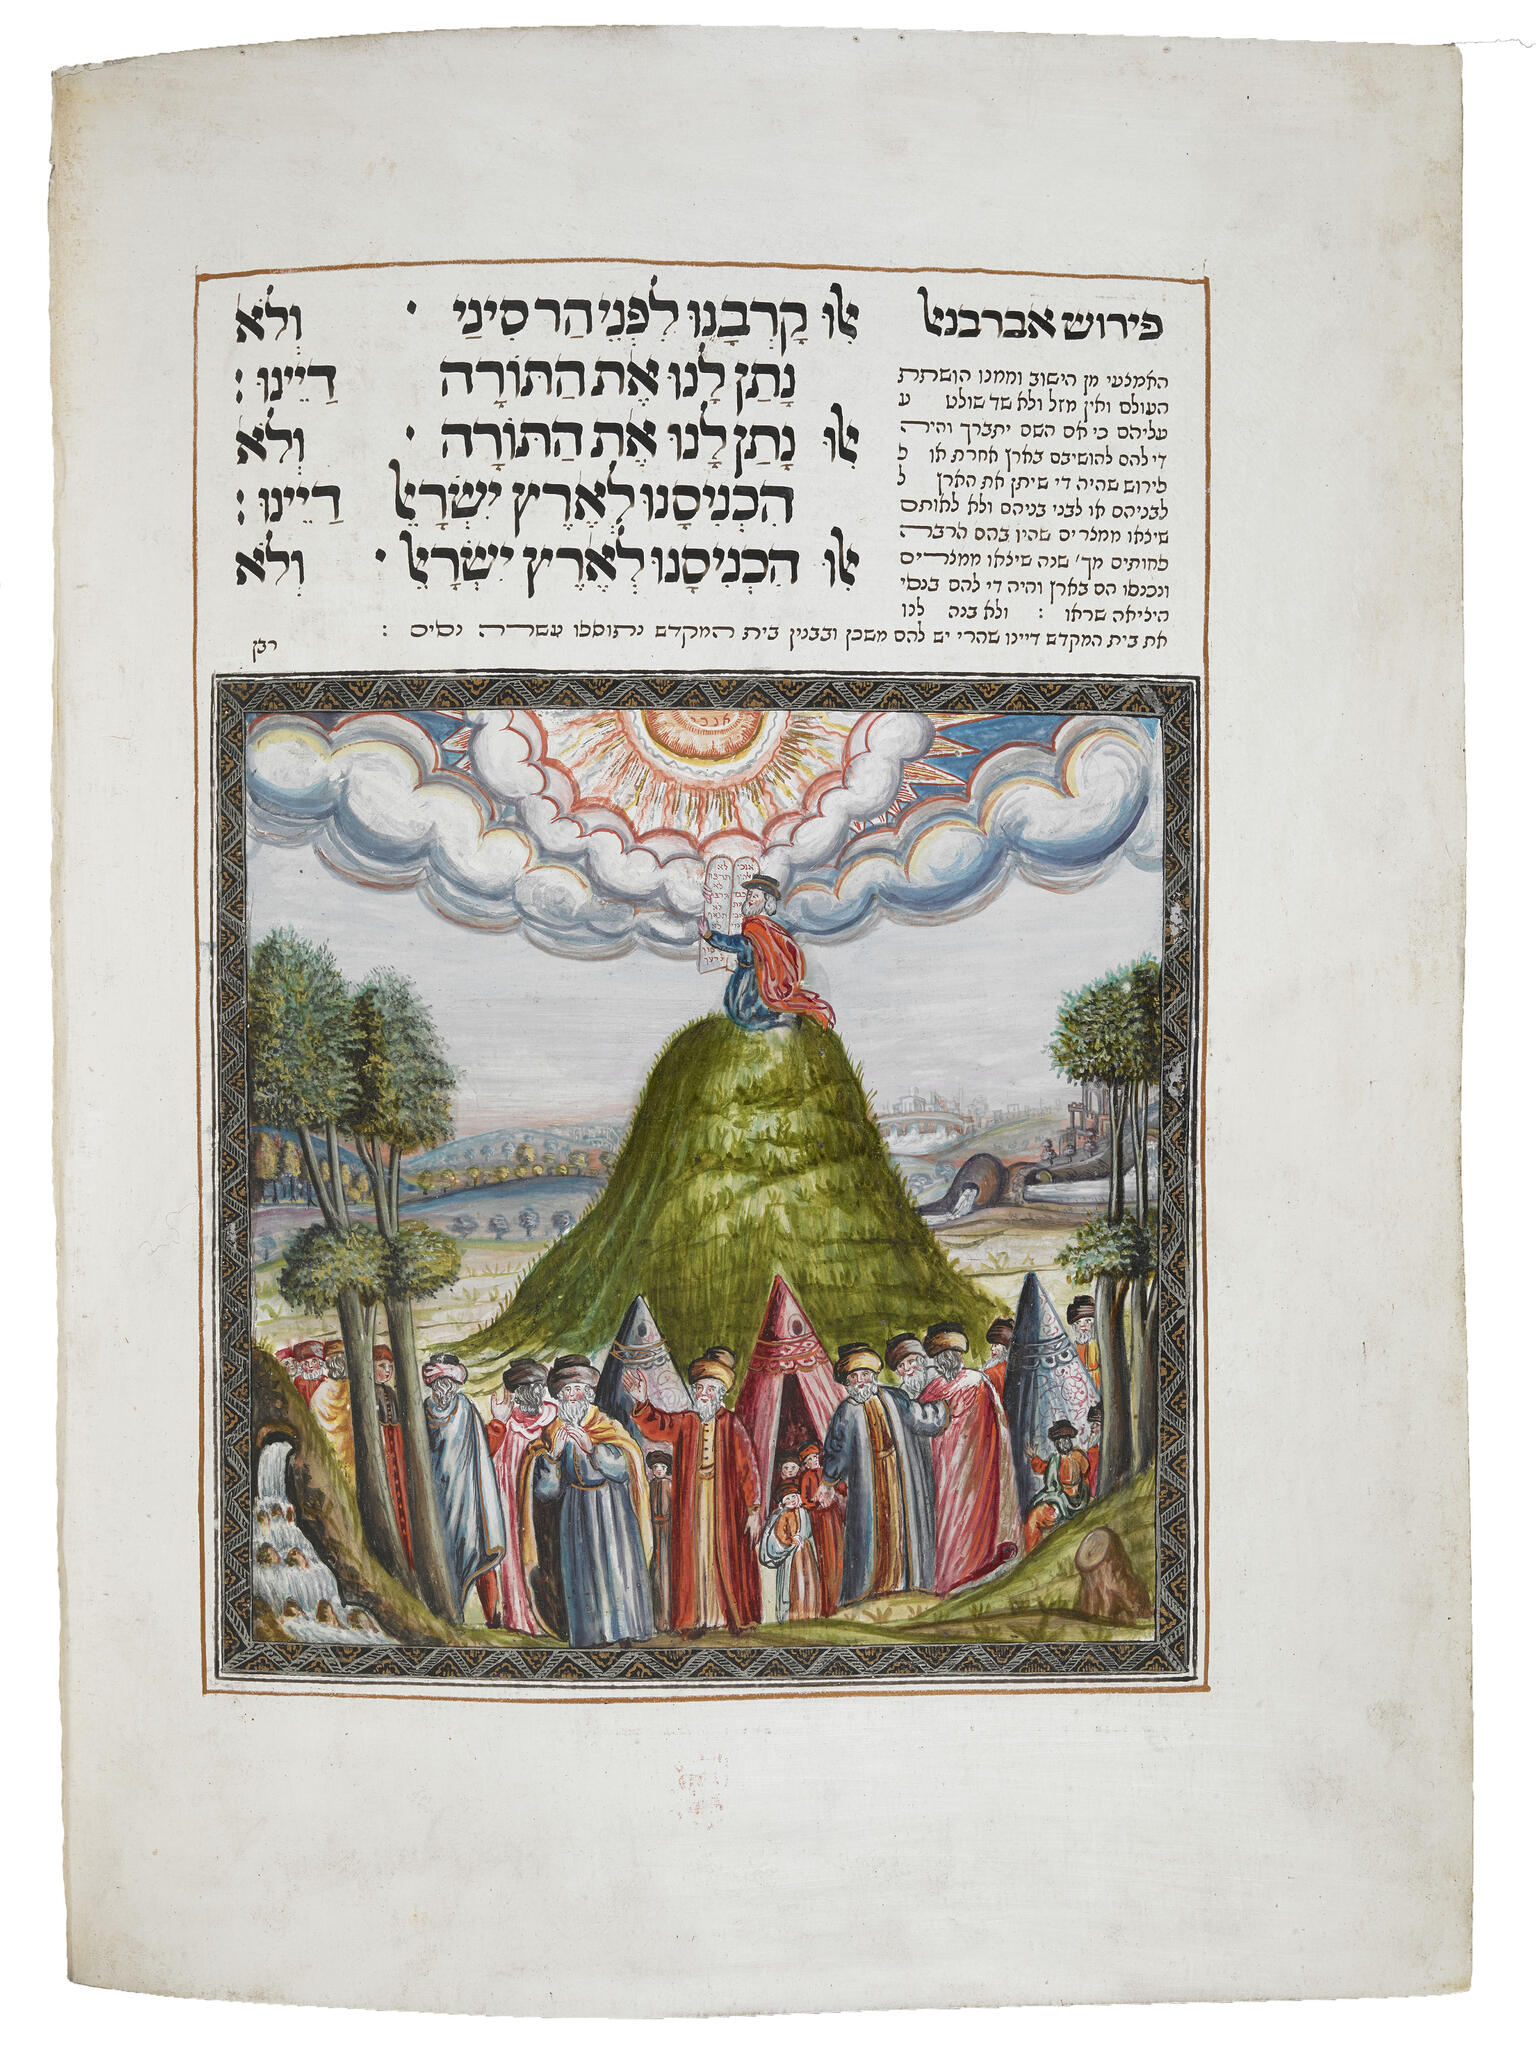 פירוש אברבנאל
האמצעי מן הישוב וממנו הושתת
העולם ואין מזל ולא שד שולט ע
עליהם כי אם השם יתברך והיה
די להם להושיבם בארץ אחרת או פ
פירוש שהיה די שיתן את הארץ ל
לבניהם או לבני בניהם ולא לאותם
שיצאו ממצרים שהין בהם הרבה
פחותים מך׳ שנה שיצאו ממצרים
ונכנסו הם בארץ והיה די להם בנסי
היציאה שראו : ולא בנה לנו
את בית המקדש דיינו שהרי יש להם משכן ובבנין בית המקדש נתוספו עשרה נסים :
אִלּוּ קָרְבָנוּ לִפְנֵי הַר סִינַי · וְלֹא
נָתַן לָנוּ אֶת הַתּוֹרָה דַיֵינוּ :
אִלּוּ נָתַן לָנוּ אֶת הַתּוֹרָה · וְלֹא
הִכְנִיסָנוּ לְאֶרֶץ יִשְׂרָאֵל דַיֵינוּ :
אִלּוּ הִכְנִיסָנוּ לְאֶרֶץ יִשְׂרָאֵל · וְלֹא
רבן
אנכי
אנכי
לא